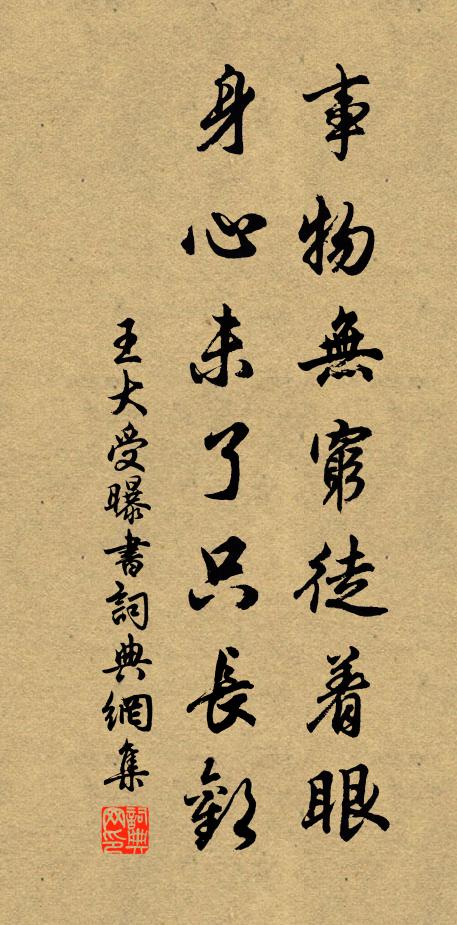 事物無窮徒着眼
身心未了只長歎
王大受曝書詞典網集
詞典
网印